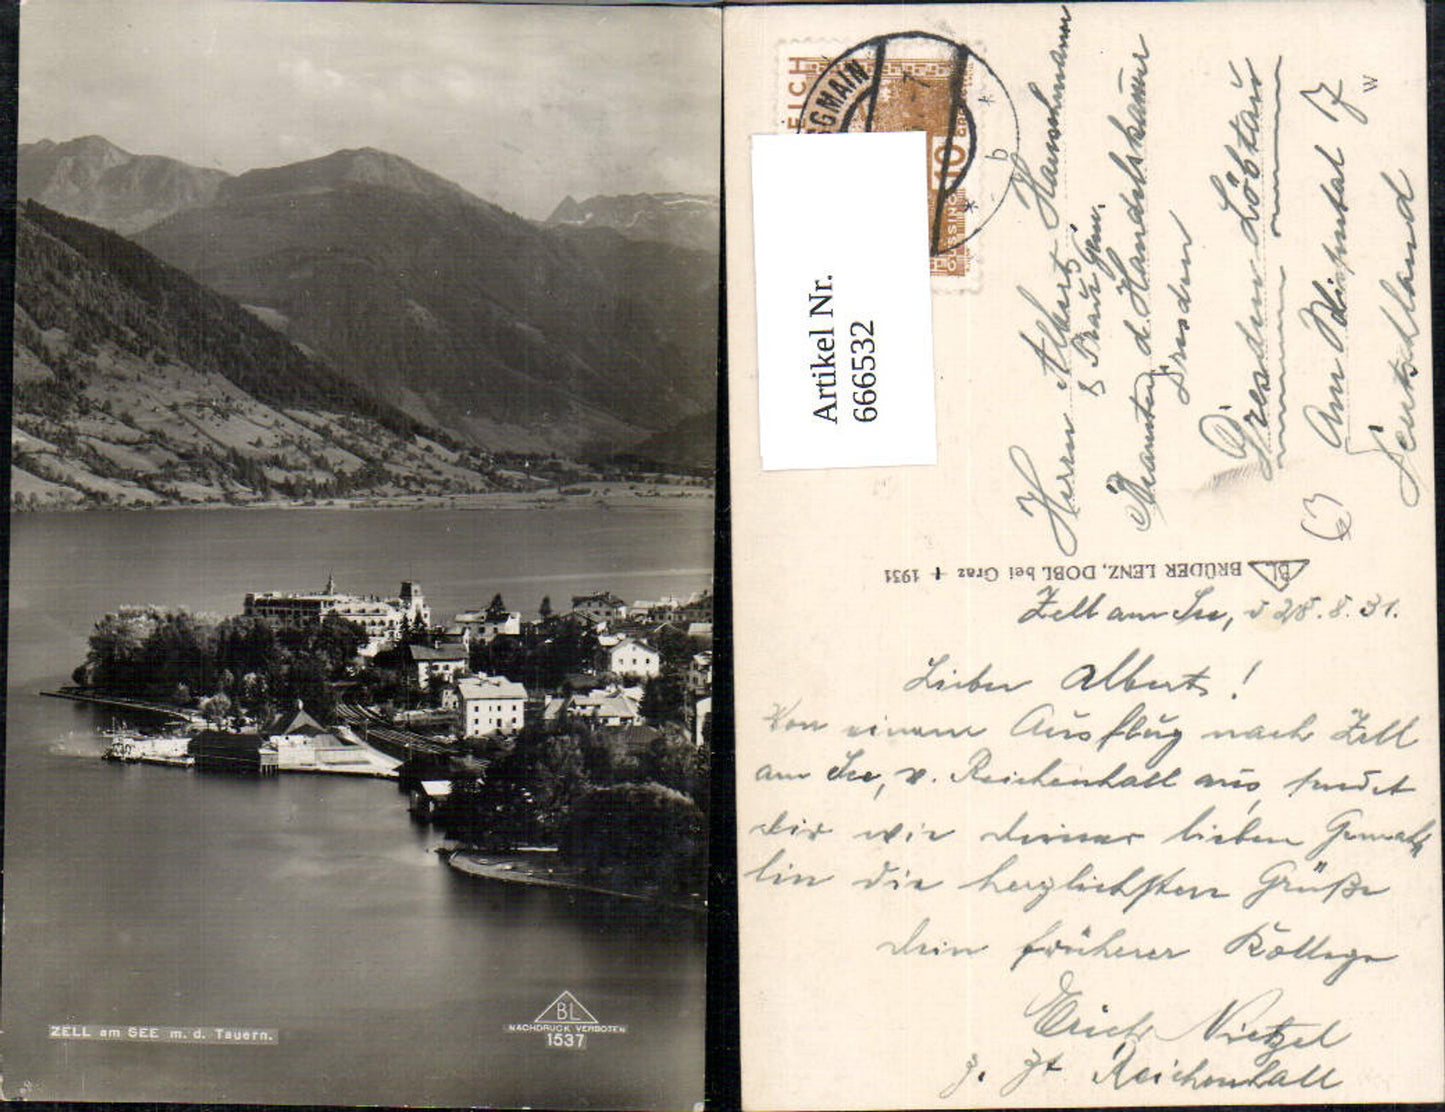 ZELL am SEE m. d. Tauern.
BL
NACHDRUCK VERBOTEN
1537
EICH
GMAIN
10
GÜSSING
b
Artikel Nr.
666532
Herren Albert
& Frau Gem.
d. Handelskammer
Dresden
Dresden-Löbtau
Am
Deutschland
W
BL BRÜDER LENZ, DOBL bei Graz + 1931
Zell am See, d 28.8.31.
Lieber Albert!
Von einem Ausflug nach Zell
am See, v. Reichenhall aus, sendet
dir wie deiner lieben Gemah-
lin die herzlichsten Grüße
dein früherer Kollege
Erich Nietzel
z. Zt Reichenhall